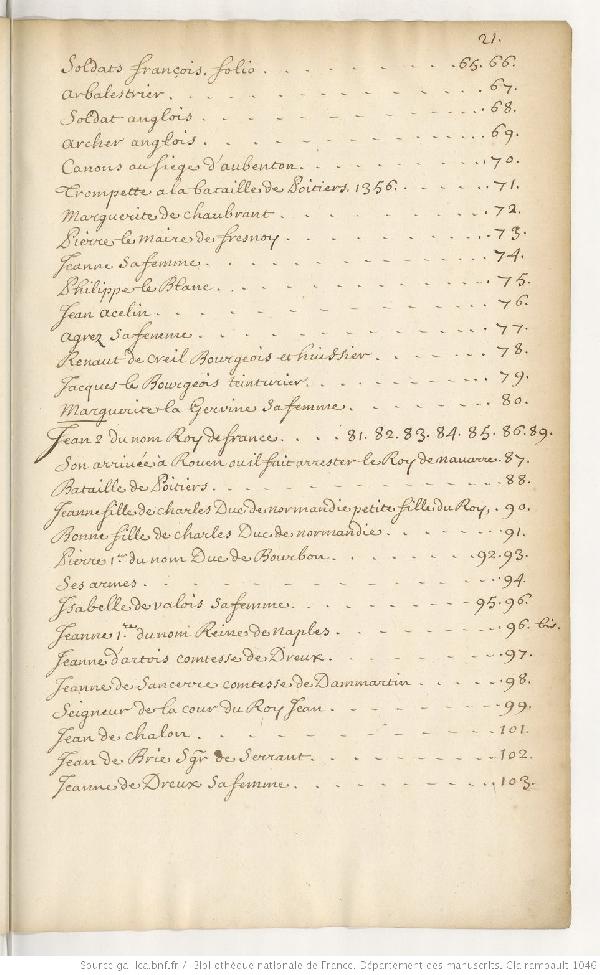 21.
Soldats françois. folio . . . . . . . . . 65. 66.
Arbalestrier . . . . . . . . . . . . . 67.
Soldat anglois . . . . . . . . . . . . 68.
Archer anglois . . . . . . . . . . . . 69.
Canons au siege d'aubenton . . . . . . . . 70.
Trompette a la bataille de Poitiers. 1356. . . . . . 71.
Marguerite de chaubrant . . . . . . . . . 72.
Pierre le maire de fresnoy . . . . . . . . 73.
Jeanne sa femme . . . . . . . . . . . . 74.
Philippe le Blanc . . . . . . . . . . . 75.
Jean acelin . . . . . . . . . . . . . 76.
agnez sa femme . . . . . . . . . . . . 77.
Renaut de creil Bourgeois et huissier . . . . . . 78.
Jacques le Bourgeois teinturier . . . . . . . . 79.
Marguerite la Gervine sa femme . . . . . . . 80.
Jean 2 du nom Roy de france . . . . 81. 82. 83. 84. 85. 86. 89.
Son arrivée à Rouen ou il fait arrester le Roy de navarre . 87.
Bataille de Poitiers . . . . . . . . . . 88.
Jeanne fille de charles Duc de normandie petite fille du Roy, . 90.
Bonne fille de charles Duc de normandie . . . . . . 91.
Pierre 1er du nom Duc de Bourbon . . . . . . 92. 93.
Ses armes . . . . . . . . . . . . . . 94.
Isabelle de valois sa femme . . . . . . . 95. 96.
Jeanne 1re du nom Reine de naples . . . . . . 96. bis.
Jeanne d'artois comtesse de Dreux . . . . . . . 97.
Jeanne de Sancerre comtesse de Dammartin . . . . . 98.
Seigneur de la cour du Roy Jean . . . . . . . 99.
Jean de chalon . . . . . . . . . . . . 101.
Jean de Brie Sgr de Serrant . . . . . . . . 102.
Jeanne de Dreux sa femme . . . . . . . . . 103.
Source gallica.bnf.fr / Bibliothèque nationale de France. Département des manuscrits. Clairambault 1046